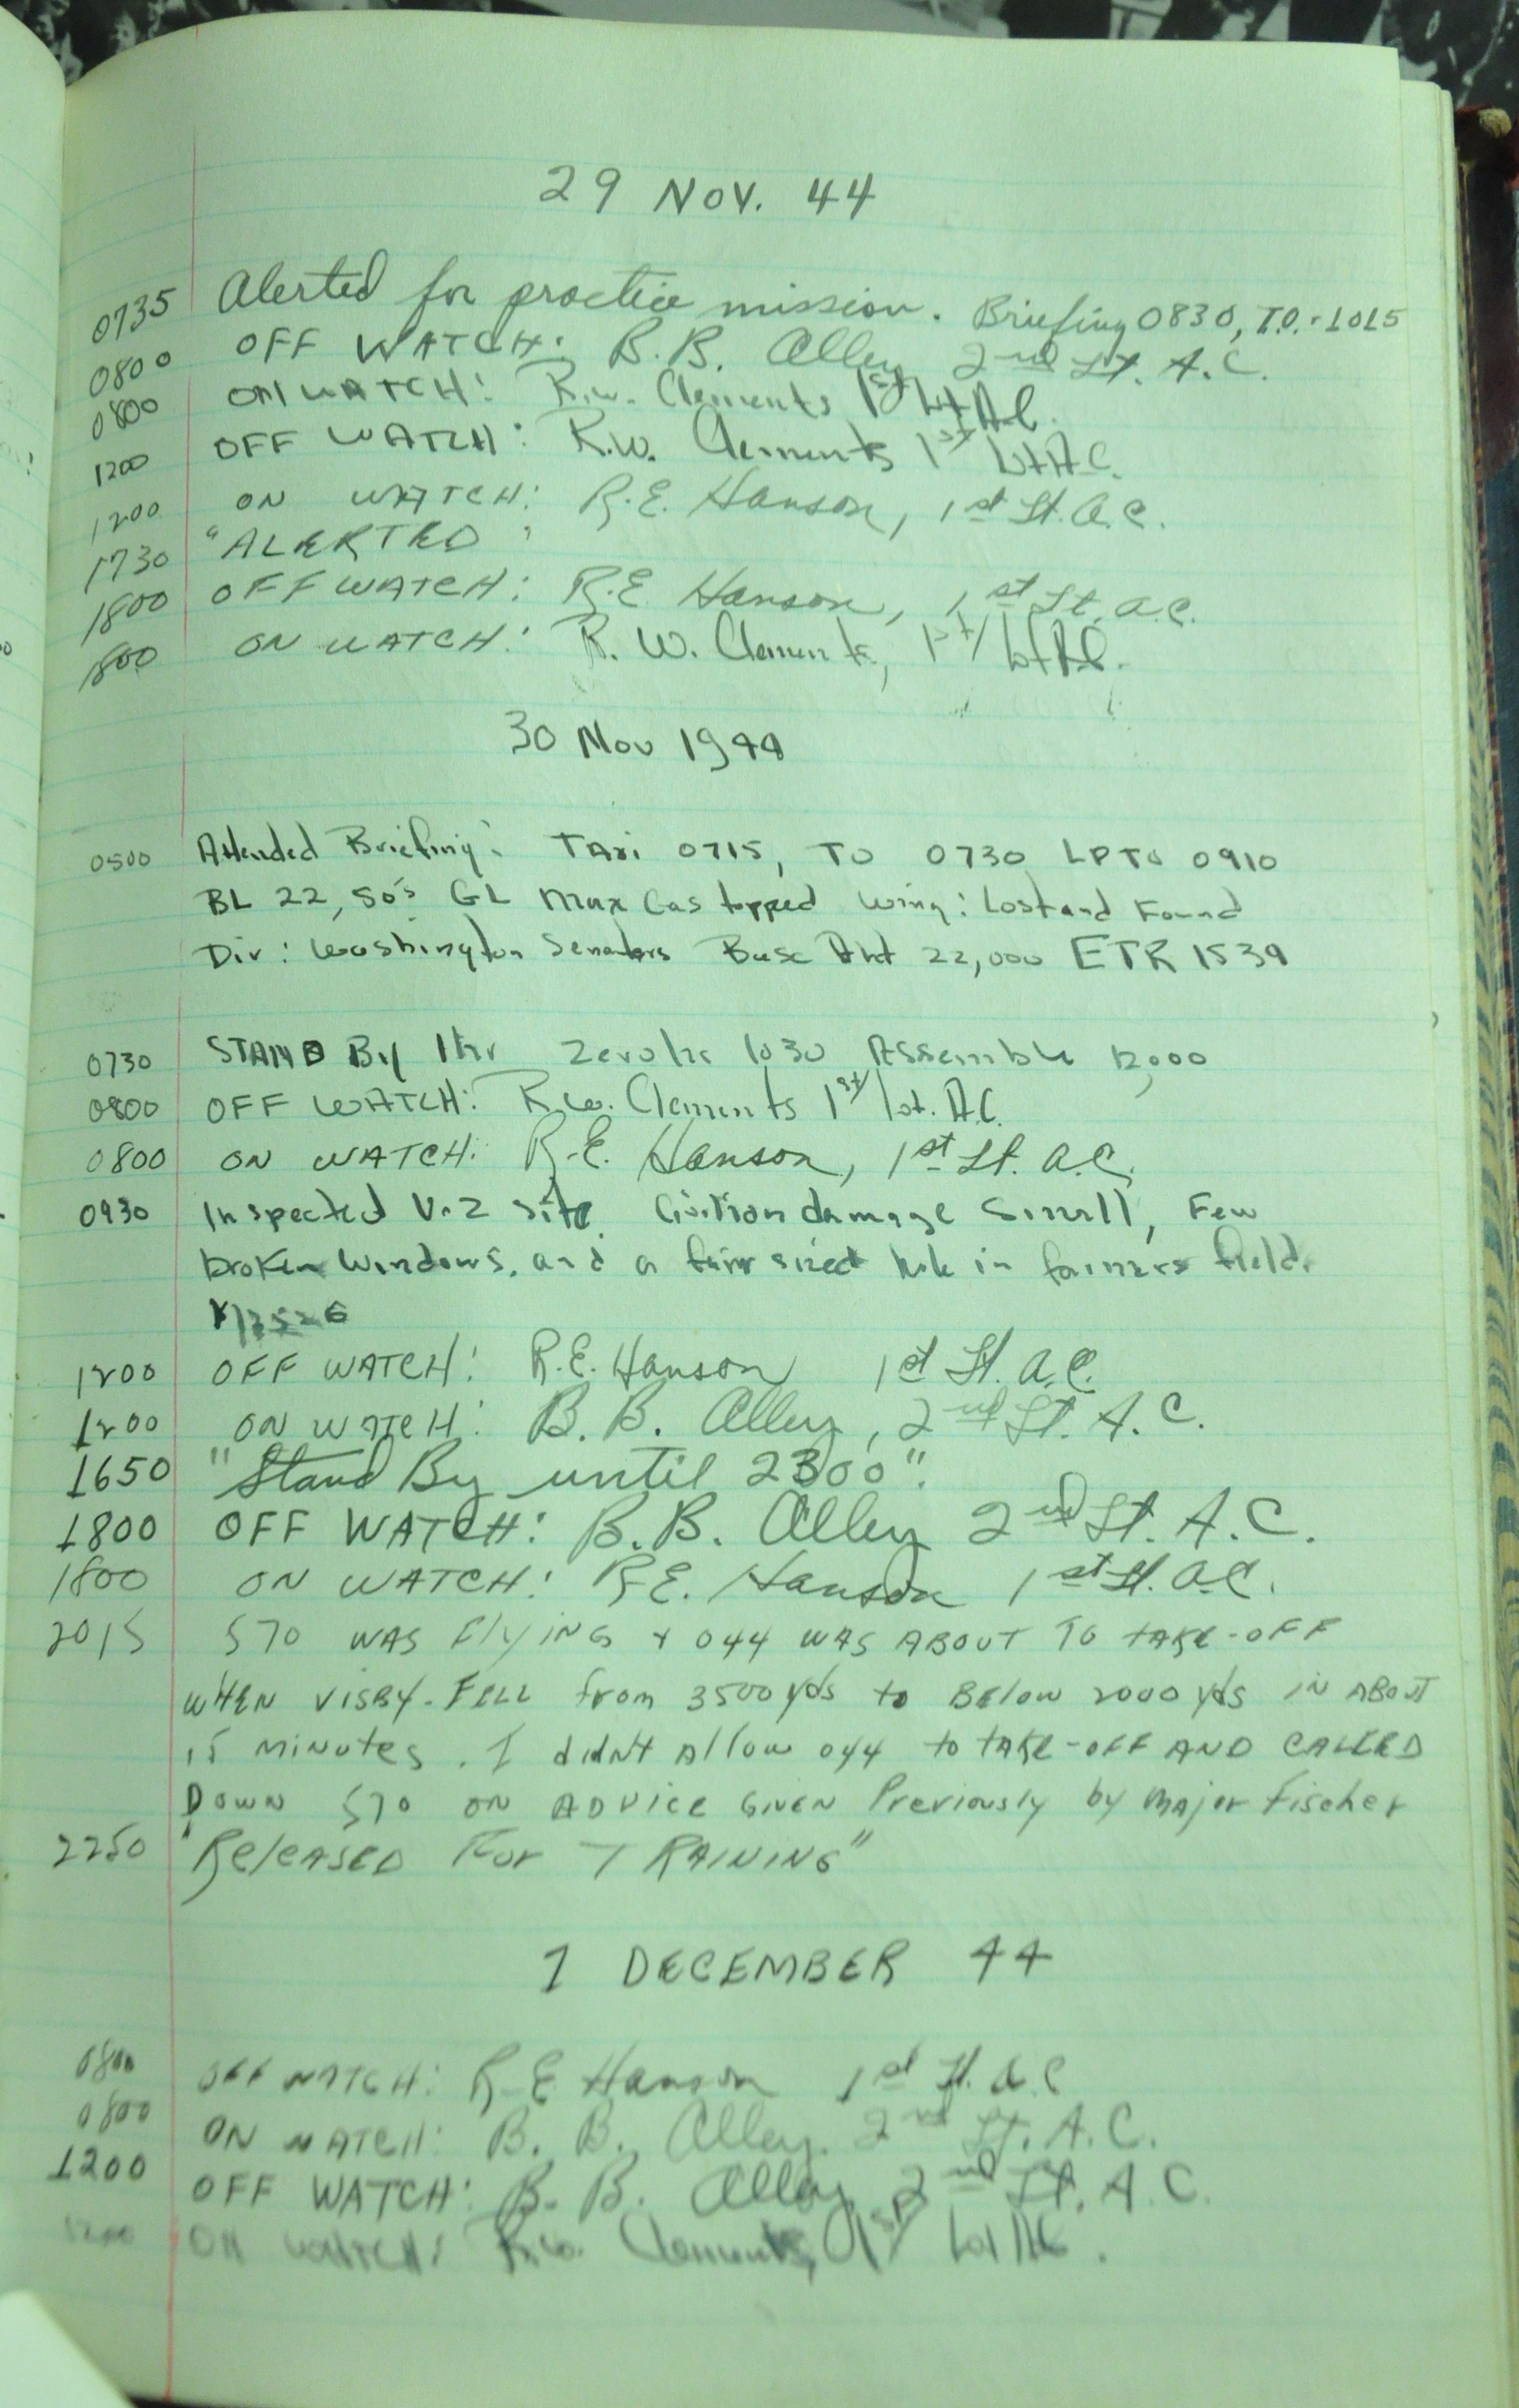 29 NOV. 44
0735 Alerted for practice mission. Briefing 0830, T.O. - 1015
0800 OFF WATCH: B. B. Alley 2nd Lt. A.C.
0800 ON WATCH: R.W. Clements 1st Lt AC.
1200 OFF WATCH: R.W. Clements 1st Lt A.C.
1200 ON WATCH: R.E. Hanson, 1st Lt. A.C.
1730 "ALERTED"
1800 OFF WATCH: R.E. Hanson, 1st Lt. A.C.
1800 ON WATCH: R. W. Clements, 1st Lt AC.
30 Nov 1944
0500 Attended Briefing: TAxi 0715, TO 0730 LPTO 0910
BL 22, 50's GL Max Gas topped Wing: Lost and Found
Div: Washington Senators Base Alt 22,000 ETR 1539
0730 STAND By 1 hr Zero hr 1030 Assemble 12,000
0800 OFF WATCH: R.W. Clements 1st Lt. A.C.
0800 ON WATCH: R.E. Hanson, 1st Lt. A.C.
0930 Inspected V-2 site. Civilian damage Small, Few
broken Windows, and a fair sized hole in farmers field.
1200 OFF WATCH: R.E. Hanson 1st Lt. A.C.
1200 ON WATCH: B. B. Alley, 2nd Lt. A.C.
1650 "Stand By until 2300".
1800 OFF WATCH: B. B. Alley 2nd Lt. A.C.
1800 ON WATCH: R.E. Hanson 1st Lt. A.C.
2015 570 WAS FlyING + 044 WAS ABOUT TO TAKE-OFF
WHEN VISBY. FELL from 3500 yds to BElow 2000 yds IN ABOUT
15 minutes. I didn't Allow 044 to TAKE-OFF AND CALLED
Down 570 ON ADVICE GIVEN Previously by Major Fischer
2250 "RElEASED For TRAINING"
1 DECEMBER 44
0800 OFF WATCH: R.E. Hanson 1st Lt. A.C.
0800 ON WATCH: B. B. Alley 2nd Lt. A.C.
1200 OFF WATCH: B. B. Alley 2nd Lt. A.C.
1200 ON WATCH: R.W. Clements, 1st Lt AC.